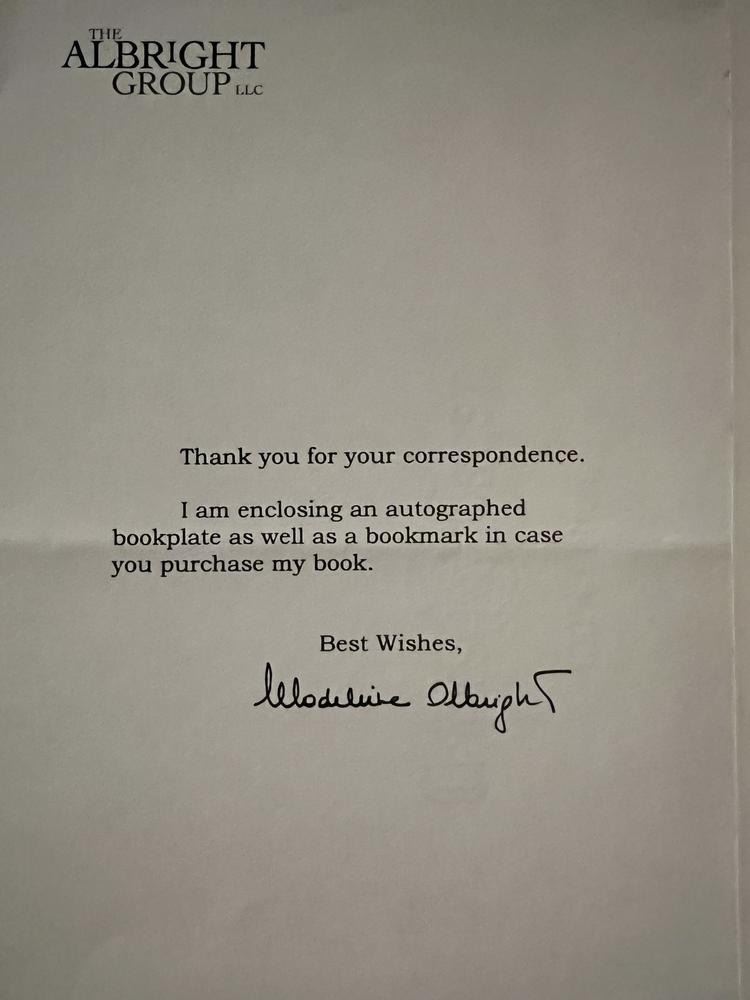 THE
ALBRIGHT
GROUP LLC
Thank you for your correspondence.
I am enclosing an autographed
bookplate as well as a bookmark in case
you purchase my book.
Best Wishes,
Madeleine Albright